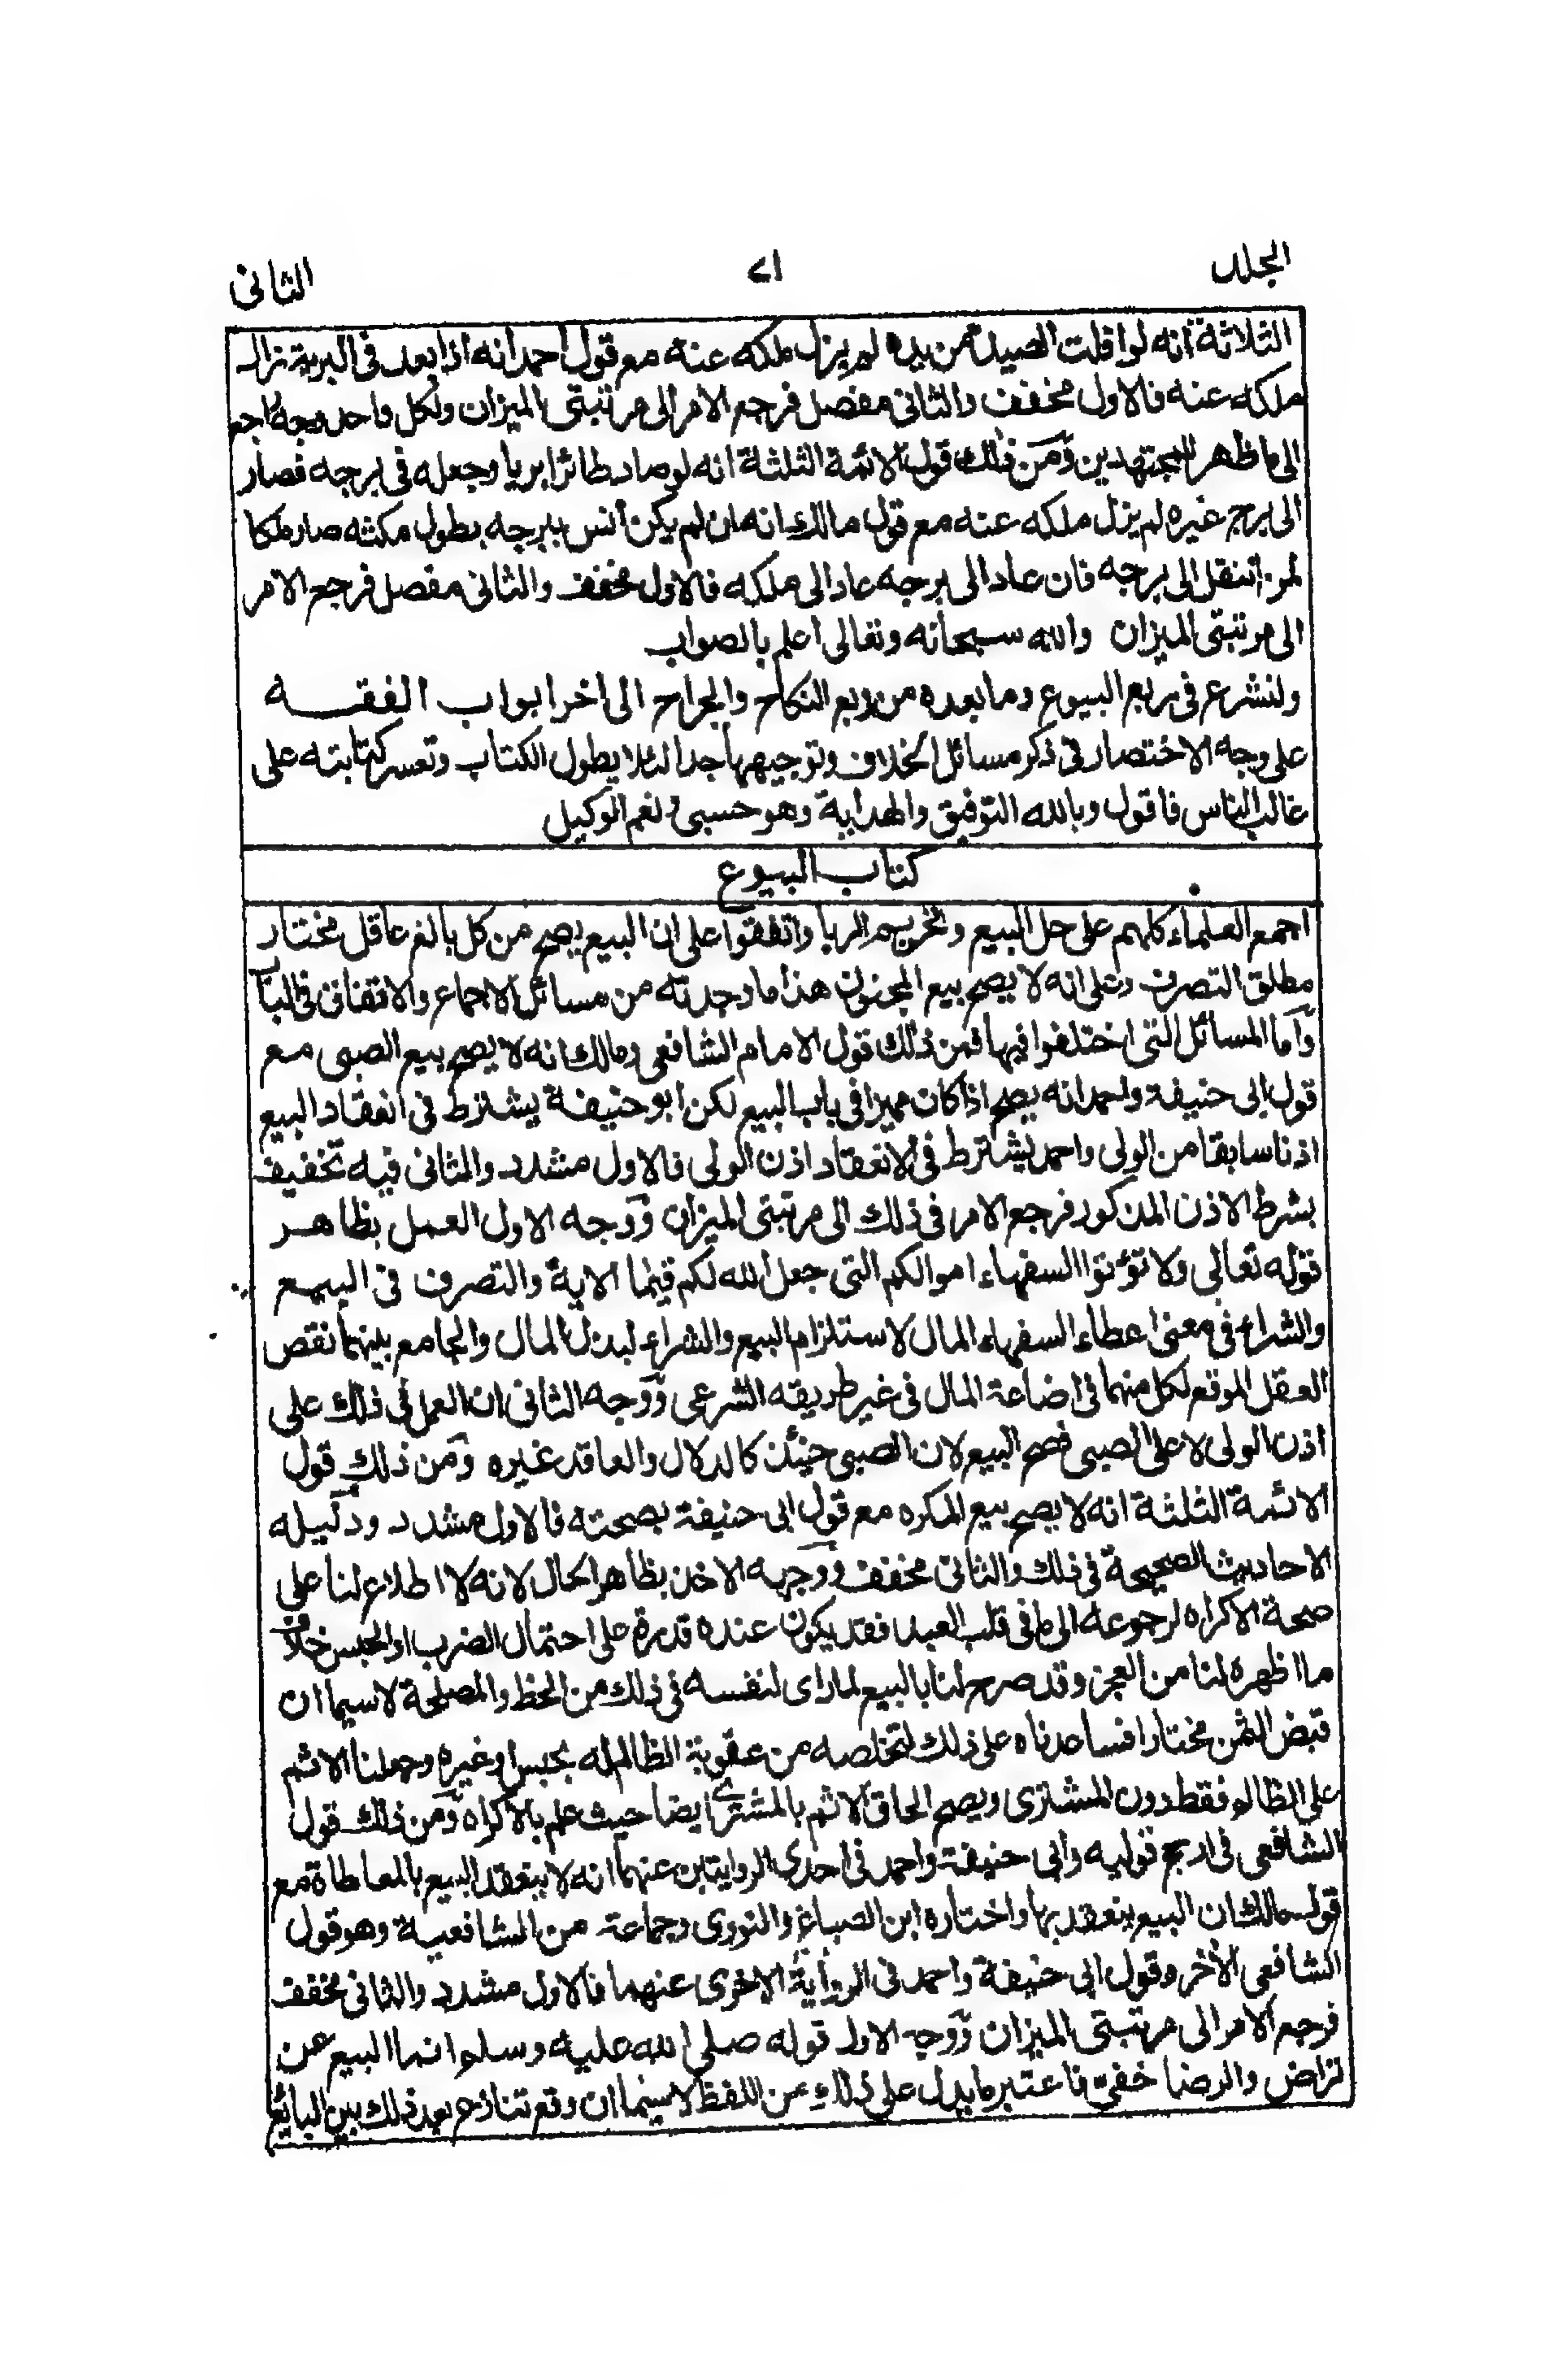 المجلد
٧١
الثانى
الثلاثة انه لو افلت الصيد من يده لم يزل ملكه عنه مع قول احمد انه اذا بعد فى البرية زال
ملكه عنه فالاول مخفف والثانى مفصل فرجع الامر الى مرتبتى الميزان ولكل واحد وجه راجع
الى ما ظهر للمجتهدين ومن ذلك قول الائمة الثلثة انه لو صاد طائرا بريا وجعله فى برجه فصار
الى برج غيره لم يزل ملكه عنه مع قول مالك انه ان لم يكن انس ببرجه بطول مكثه صار ملكا
لمن انتقل الى برجه فان عاد الى برجه عاد الى ملكه فالاول مخفف والثانى مفصل فرجع الامر
الى مرتبتى الميزان والله سبحانه وتعالى اعلم بالصواب
ولنشرع فى ربع البيوع وما بعده من ربع النكاح والجراح الى اخر ابواب الفقه
على وجه الاختصار فى ذكر مسائل الخلاف وتوجيهها جدا لئلا يطول الكتاب وتعسر كتابته على
غالب الناس فاقول وبالله التوفيق والهداية وهو حسبى ونعم الوكيل
كتاب البيوع
اجمع العلماء كلهم على حل البيع وتحريم الربا واتفقوا على ان البيع يصح من كل بالغ عاقل مختار
مطلق التصرف وعلى انه لا يصح بيع المجنون هذا ما وجدته من مسائل الاجماع والاتفاق فى البا
واما المسائل التى اختلفوا فيها فمن ذلك قول الامام الشافعى ومالك انه لا يصح بيع الصبى مع
قول ابى حنيفة واحمد انه يصح اذا كان مميزا فى باب البيع لكن ابو حنيفة يشترط فى انعقاد البيع
اذنا سابقا من الولى واحمد يشترط فى الانعقاد اذن الولى فالاول مشدد والثانى فيه تخفيف
بشرط الاذن المذكور فرجع الامر فى ذلك الى مرتبتى الميزان ووجه الاول العمل بظاهر
قوله تعالى ولا تؤتوا السفهاء اموالكم التى جعل الله لكم قيما الاية والتصرف فى البيع
والشراء فى معنى اعطاء السفهاء المال لاستلزام البيع والشراء لبذل المال والجامع بينهما نقص
العقل الموقع لكل منهما فى اضاعة المال فى غير طريقه الشرعى ووجه الثانى ان العمل فى ذلك على
اذن الولى لا على الصبى فصح البيع لان الصبى حينئذ كالدلال والعاقد غيره ومن ذلك قول
الائمة الثلثة انه لا يصح بيع المكره مع قول ابى حنيفة بصحته فالاول مشدد ودليله
الاحاديث الصحيحة فى ذلك والثانى مخفف ووجهه الاخذ بظاهر الحال لانه لا اطلاع لنا على
صحة الاكراه لرجوعه الى ما فى قلب العبد فقد يكون عنده قدرة على احتمال الضرب او الحبس خلاف
ما اظهره لنا من العجز وقد صرح لنا بالبيع لما راى لنفسه فى ذلك من الحظ والمصلحة لا سيما ان
قبض الثمن مختارا فساعدناه على ذلك لتخلصه من عقوبة الظالم له بحبس او غيره وجعلنا الاثم
على الظالم فقط دون المشترى ويصح الحاق الاثم بالمشترى ايضا حيث علم بالاكراه ومن ذلك قول
الشافعى فى ارجح قوليه وابى حنيفة واحمد فى احدى الروايتين عنهما انه لا ينعقد البيع بالمعاطاة مع
قول مالك ان البيع ينعقد بها واختاره ابن الصباغ والنووى وجماعة من الشافعية وهو قول
الشافعى الأخر وقول ابى حنيفة واحمد فى الرواية الاخرى عنهما فالاول مشدد والثانى مخفف
فرجع الامر الى مرتبتى الميزان ووجه الاول قوله صلى الله عليه وسلم انما البيع عن
تراض والرضا خفى فاعتبر ما يدل على ذلك من اللفظ لا سيما ان وقع تنازع بعد ذلك بين البائع